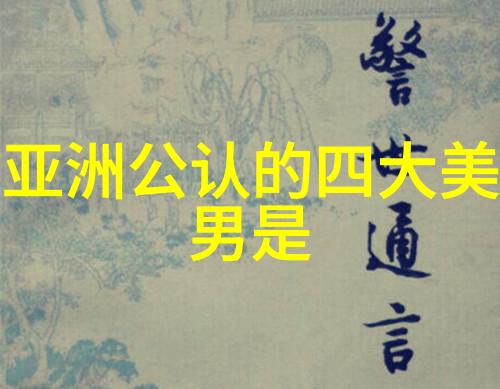 亚洲公认的四大美
男是
警世通言